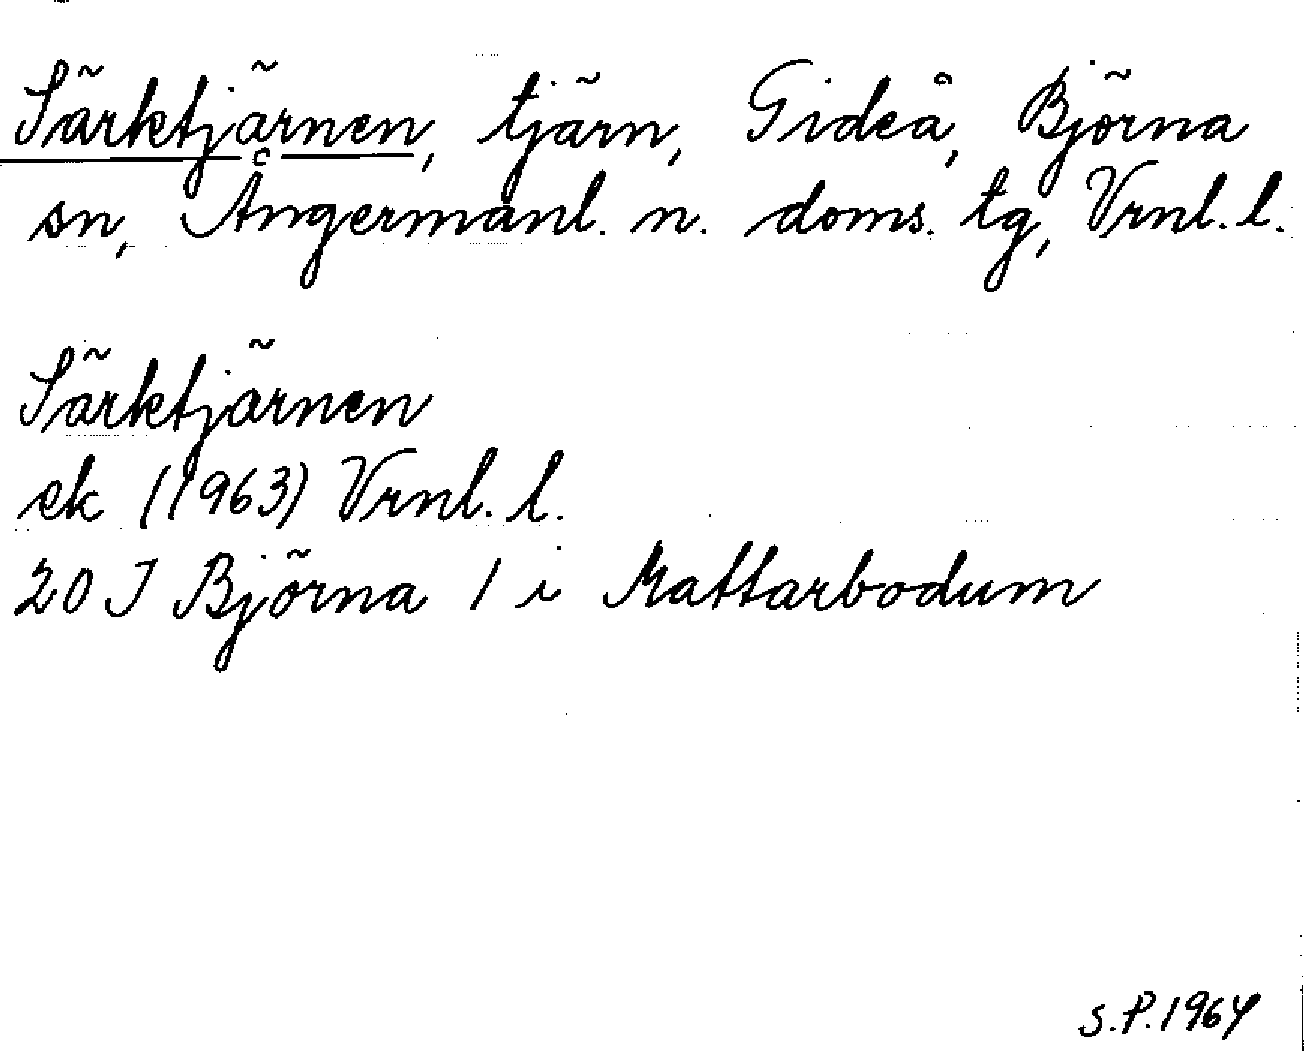 Särktjärnen, tjärn, Gideå, Björna
sn, Ångermanl. n. doms. tg, Vrnl. l.
Särktjärnen
ek (1963) Vrnl. l.
20 J Björna 1 i Mattarbodum
S.P. 1964